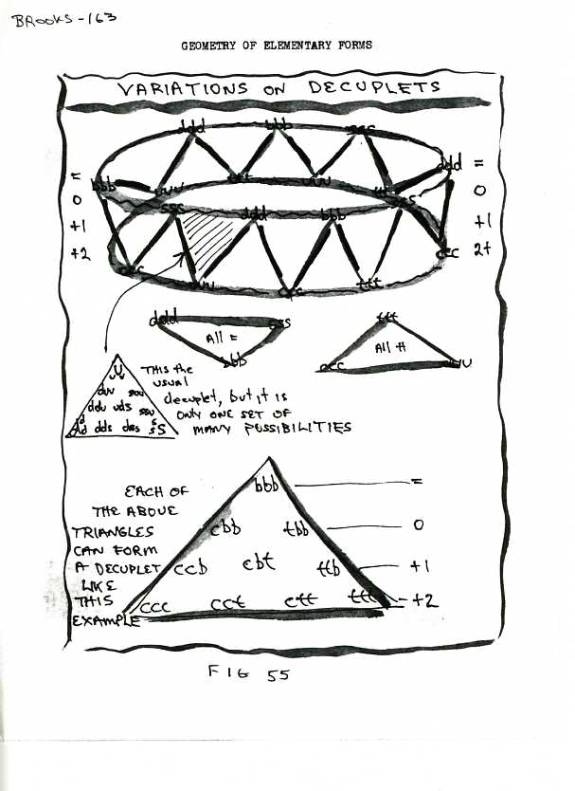 BROOKS-163
GEOMETRY OF ELEMENTARY FORMS
VARIATIONS ON DECUPLETS
ddd bbb sss
= bbb uuu ttt uuu ttt ddd =
0 sss ddd bbb 0
+1 +1
+2 ccc uuu ccc ttt ccc 2+
ddd sss ttt
All = All #
bbb ccc uuu
THIS the
usual
decuplet, but it is
ONLY ONE SET OF
MANY POSSIBILITIES
ddu uds
dds dss
EACH OF
THE ABOVE
TRIANGLES
CAN FORM
A DECUPLET
LIKE
THIS
EXAMPLE
bbb =
cbb tbb 0
ccb cbt ttb +1
ccc cct ctt ttt +2
FIG 55